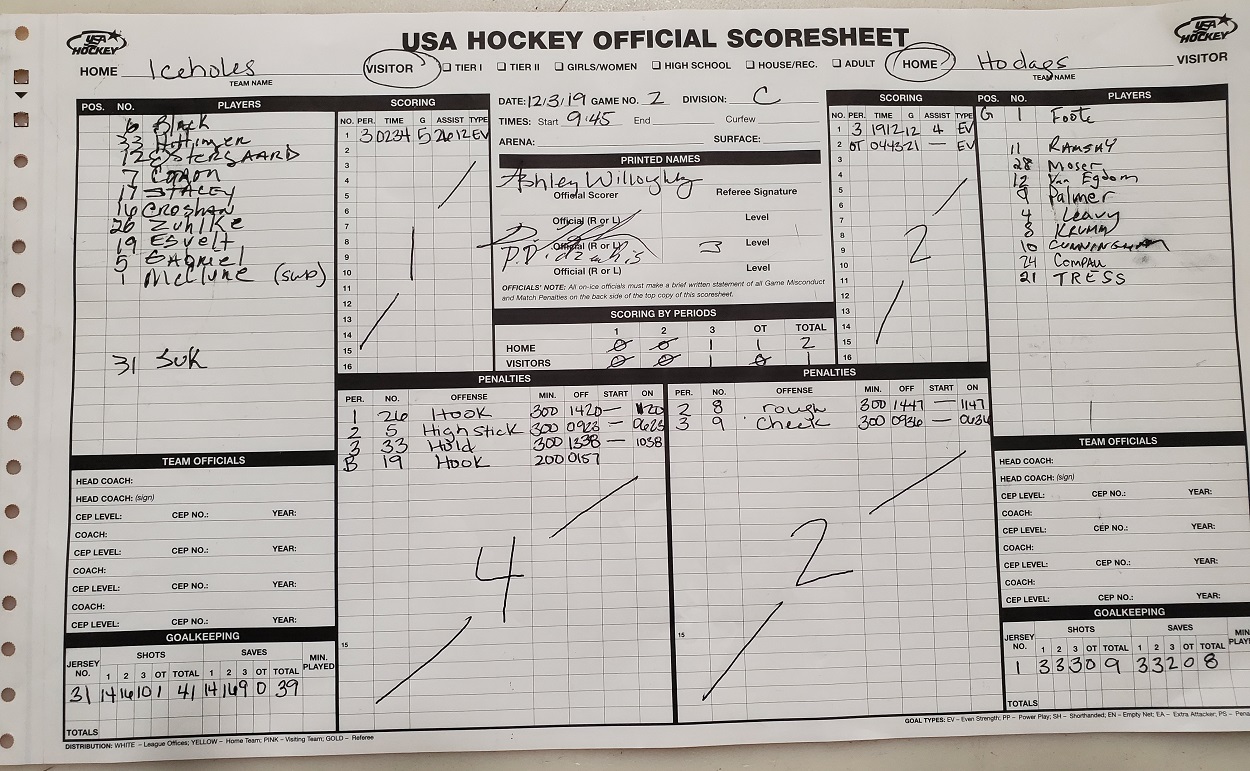 USA HOCKEY
USA HOCKEY OFFICIAL SCORESHEET
USA HOCKEY
HOME Iceholes VISITOR
TEAM NAME
TIER I TIER II GIRLS/WOMEN HIGH SCHOOL HOUSE/REC. ADULT
HOME Hodags VISITOR
TEAM NAME
POS. NO. PLAYERS
6 Black
33
12 ESTERGAARD
7
17 STACEY
16
26 Zuhlke
19 Esvelt
5
1 McClune (sub)
31 Suk
SCORING
NO. PER. TIME G ASSIST TYPE
1 3 0234 5 26 12 EV
2
3
4
5
6
7
8
9
10
11
12
13
14
15
16
1
DATE: 12/3/19 GAME NO. 2 DIVISION: C
TIMES: Start 9:45 End Curfew
ARENA: SURFACE:
PRINTED NAMES
Ashley Willoughby
Official Scorer Referee Signature
Official (R or L) Level
Official (R or L) 3 Level
Official (R or L) Level
OFFICIALS' NOTE: All on-ice officials must make a brief written statement of all Game Misconduct
and Match Penalties on the back side of the top copy of this scoresheet.
SCORING BY PERIODS
1 2 3 OT TOTAL
HOME 0 0 1 1 2
VISITORS 0 0 1 0 1
SCORING
NO. PER. TIME G ASSIST TYPE
1 3 1912 12 4 EV
2 OT 0443 21 — EV
3
4
5
6
7
8
9
10
11
12
13
14
15
16
2
POS. NO. PLAYERS
G 1 Foote
11 RAMSAY
28 Moser
12 Van Egdom
9 Palmer
4 Leavy
8 KRUMM
10 CUNNINGHAM
24 COMPAU
21 TRESS
PENALTIES
PER. NO. OFFENSE MIN. OFF START ON
1 26 Hook 300 1420 — 1120
2 5 High Stick 300 0923 — 0623
3 33 Hold 300 1338 — 1038
19 Hook 200 0157
4
15
PENALTIES
PER. NO. OFFENSE MIN. OFF START ON
2 8 rough 300 1447 — 1147
3 9 Check 300 0936 — 0636
2
15
TEAM OFFICIALS
HEAD COACH:
HEAD COACH: (sign)
CEP LEVEL: CEP NO.: YEAR:
COACH:
CEP LEVEL: CEP NO.: YEAR:
COACH:
CEP LEVEL: CEP NO.: YEAR:
COACH:
CEP LEVEL: CEP NO.: YEAR:
GOALKEEPING
JERSEY NO. SHOTS SAVES MIN. PLAYED
1 2 3 OT TOTAL 1 2 3 OT TOTAL
31 14 16 10 1 41 14 16 9 0 39
TOTALS
TEAM OFFICIALS
HEAD COACH:
HEAD COACH: (sign)
CEP LEVEL: CEP NO.: YEAR:
COACH:
CEP LEVEL: CEP NO.: YEAR:
COACH:
CEP LEVEL: CEP NO.: YEAR:
COACH:
CEP LEVEL: CEP NO.: YEAR:
GOALKEEPING
JERSEY NO. SHOTS SAVES MIN
1 2 3 OT TOTAL 1 2 3 OT TOTAL
1 3 3 3 0 9 3 3 2 0 8
TOTALS
DISTRIBUTION: WHITE – League Offices; YELLOW – Home Team; PINK – Visiting Team; GOLD – Referee
GOAL TYPES: EV – Even Strength; PP – Power Play; SH – Shorthanded; EN – Empty Net; EA – Extra Attacker; PS –